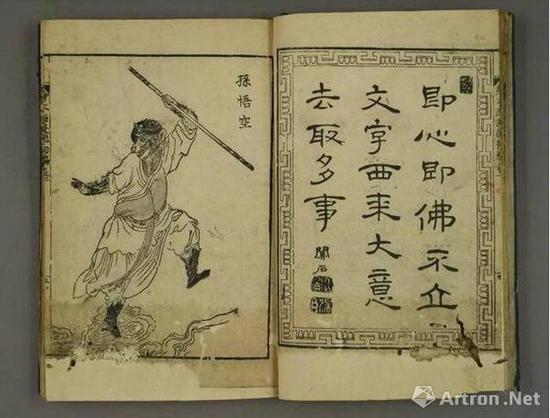 即心即佛不立
文字西来大意
去取多事
孫悟空
Artron.Net